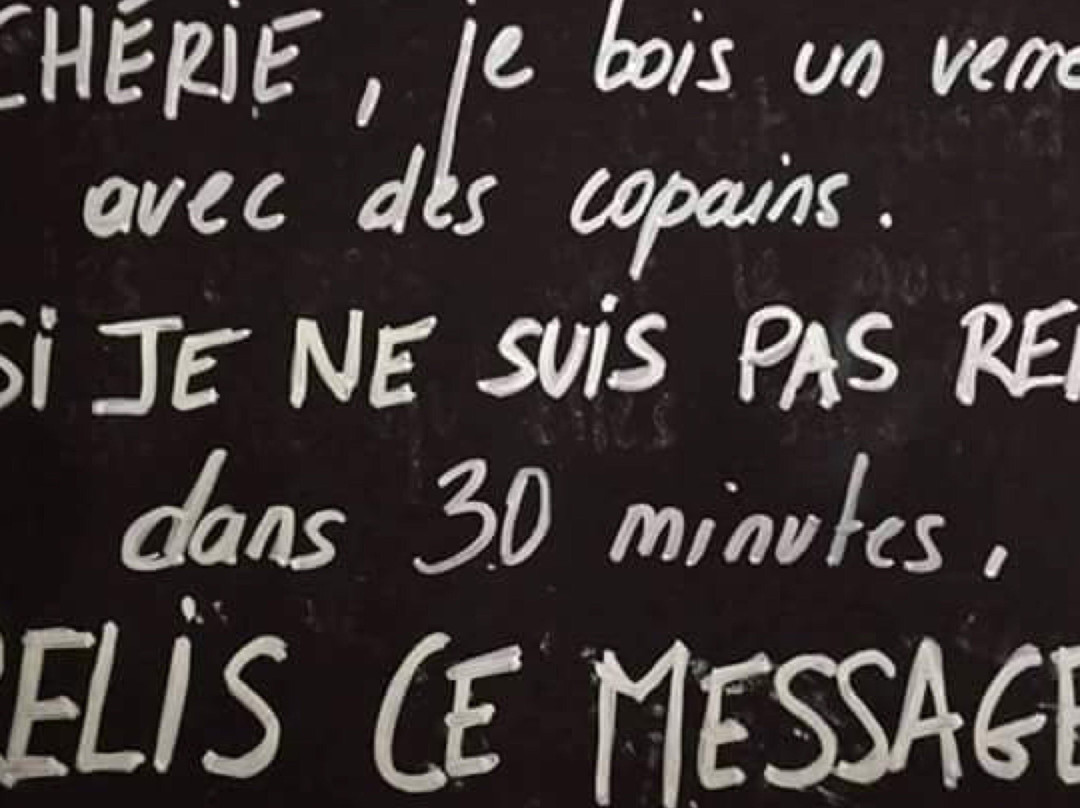 CHÉRIE, je bois un verre
avec des copains.
Si JE NE SUiS PAS
dans 30 minutes,
RELiS CE MESSAGE